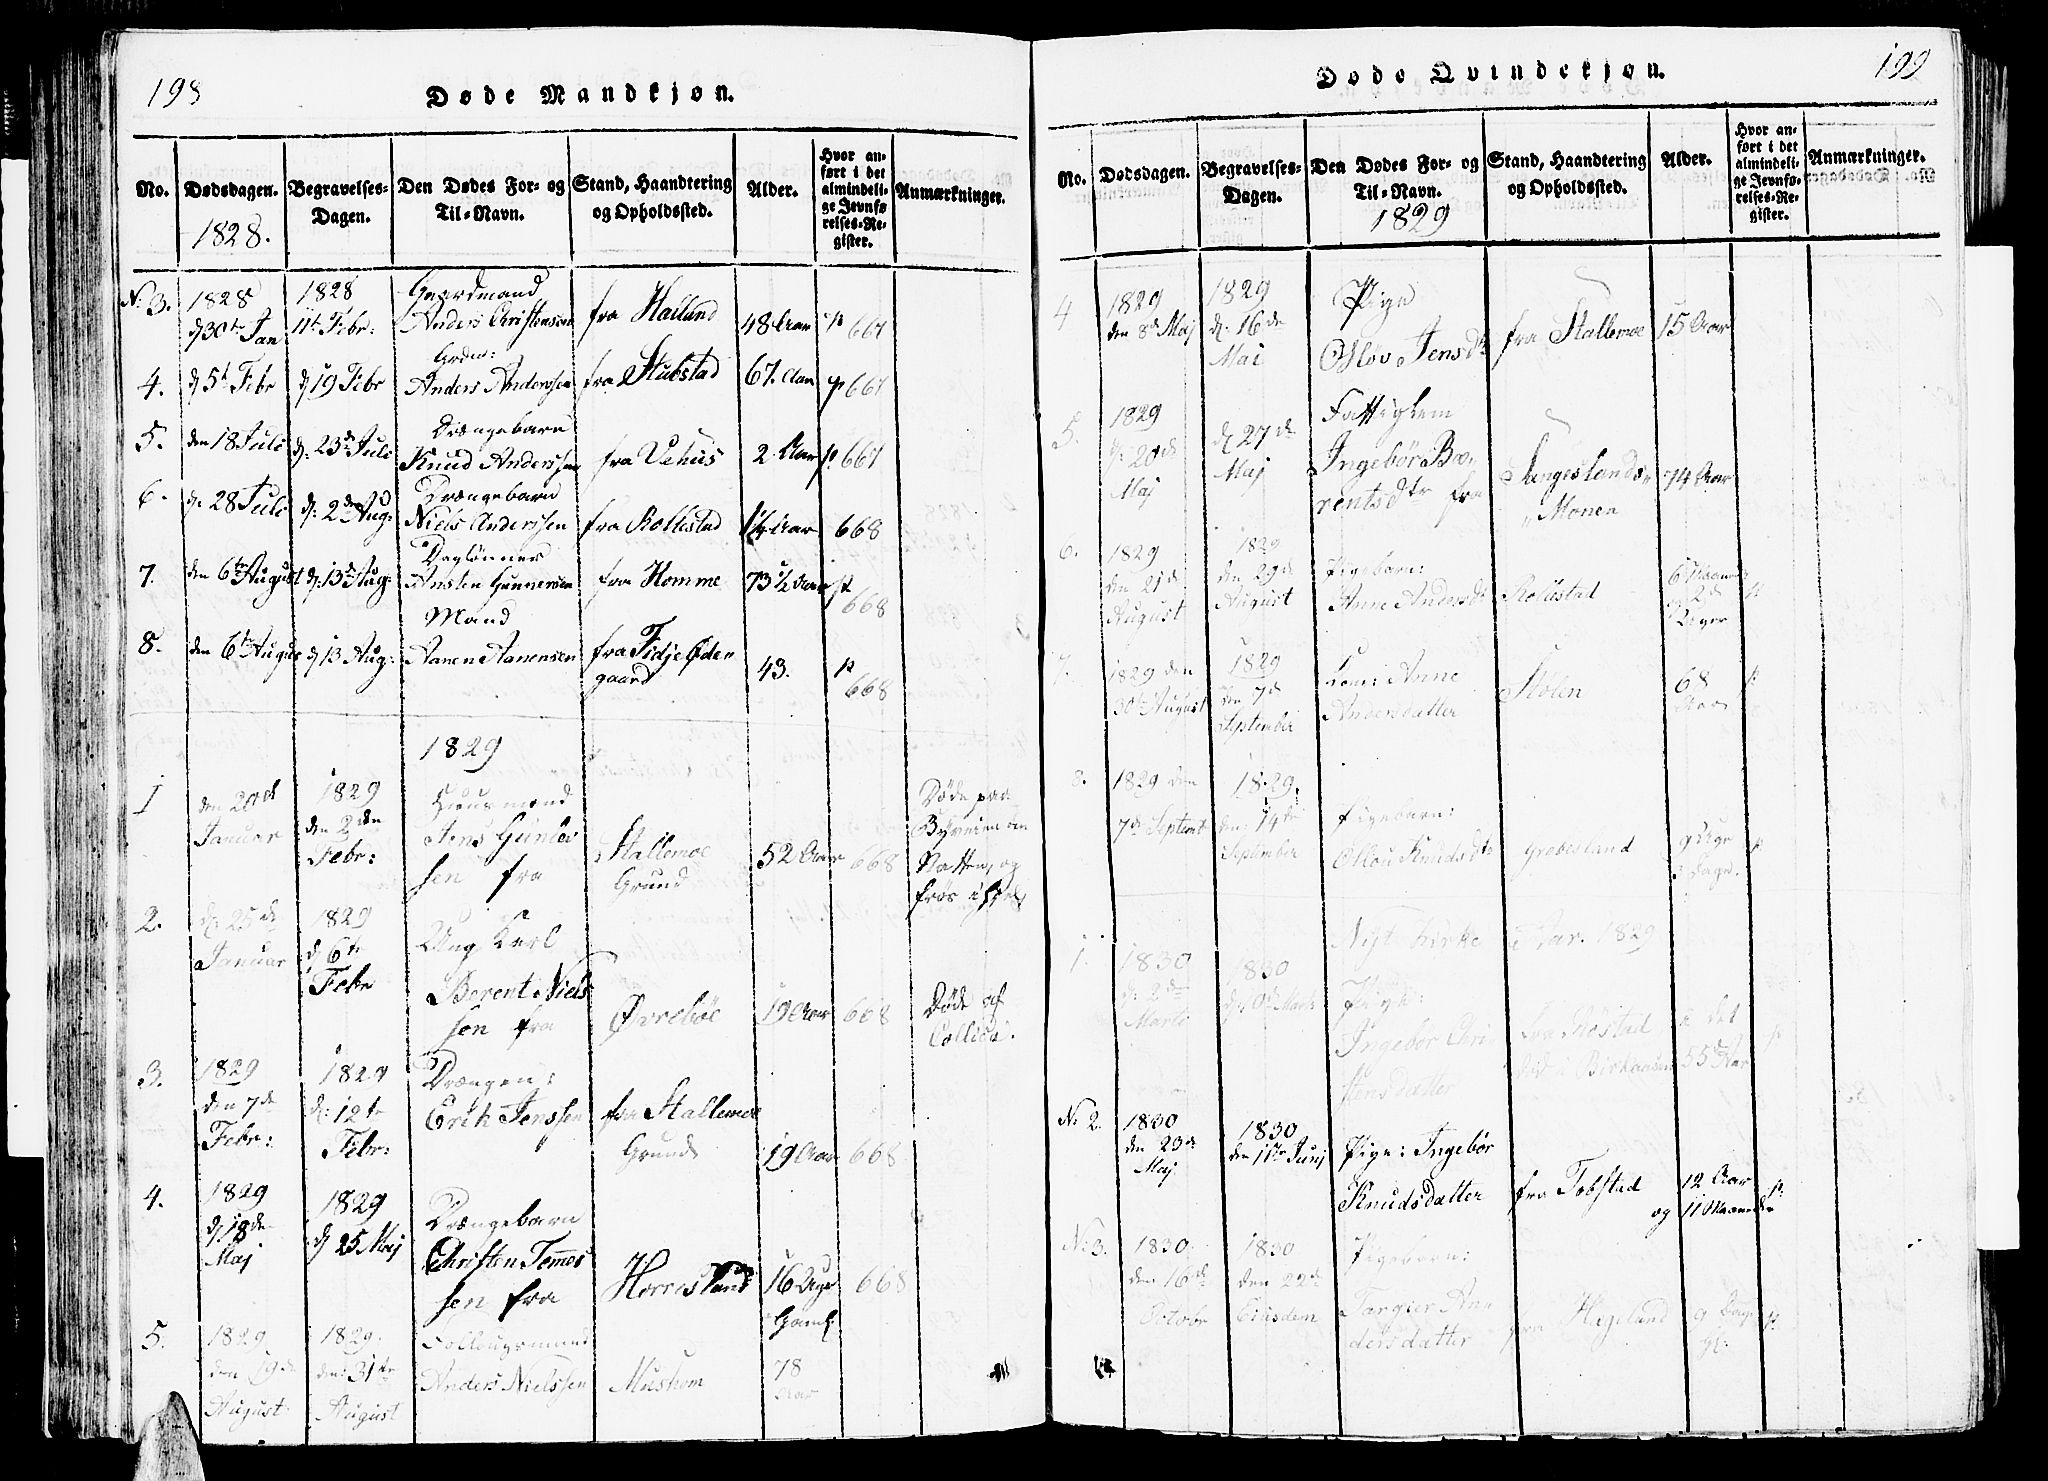 198
Døde Mandkjøn.
No.
Dødsdagen.
1828.
Begravelses-
Dagen.
Den Dødes For- og
Til-Navn.
Stand, Haandtering
og Opholdssted.
Alder.
Hvor an-
ført i det
almindeli-
ge Jevnfø-
relses-Re-
gister.
Anmærkninger.
No 3.
1828
d 30te Jan
1828
11t Febr:
Gaardmand
Anders Christensen
fra Halland
48 Aar
p 667
4.
d 5t Febr
d 19 Febr
Grdm:
Anders Anderssen
fra Stubstad
67. Aar
p 667
5.
den 18 Juli
d: 23de Juli
Drængebarn
Knud Anderssen
fra Vehus
2 Aar
p 667
6.
d. 28 Juli
d: 2den Aug:
Drængebarn
Niels Anderssen
fra Rollestad
1½ Aar
668
7.
den 6te August
d: 13de Aug:
Daglønner
Ansten Gunnersen
fra Homme
73½ Aar
p
668
8.
den 6te August
d 13 Aug:
Mand
Aanen Aanensen
fra Fidje Øde
gaard
43.
p
668
1829
1
den 20de
Januar
1829
den 2den
Febr:
Huusmand
Jens Gunles
sen fra
Stallemoe
Grund
52 Aar
668
Døde paa
Byveien om
Natten, og
frøs ihjel
2.
d: 25de
Januar
1829
d 6te
Febr
Ung Karl
Berent Niels
sen fra
Øvrebøe
19 Aar
668
Døde af
Collica.
3.
1829
den 7de
Febr:
1829
d: 12te
Febr:
Drængen:
Erik Jenssen
fra Stallemoe
Grund
19 Aar
668
4.
1829
d 18de
Maj
1829
d 25 Maj
Drængebarn
Christen Tømes
sen fra
Horrisland
16 Uger
Gaml
668
5.
1829
den 19de
August
1829.
den 31te
August
Anders Nielssen
Mushom
78
Aar
199
Døde Qvindekjøn.
No.
Dødsdagen.
Begravelses-
Dagen.
Den Dødes For- og
Til-Navn.
1829
Stand, Haandtering
og Opholdssted.
Alder.
Hvor an-
ført i det
almindeli-
ge Jevnfø-
relses-Re-
gister.
Anmærkninger.
4
1829
den 8de Maj
1829
d: 16de
Mai
Pige
Osløv Jensdtr
fra Stallemoe
15 Aar
5.
1829
d: 20de
Maj
d: 27de
Maj
Fattiglem
Ingebør Be-
rentsdtr fra
Langeslands-
Monen
74 Aar
6.
1829
den 21de
August
1829
den 29de
August
Pigebarn:
Anne Andersdtr
Rollestad
6 Maaneder
2
Uger
p
7.
1829 den
30te August
1829
den 7de
September
Kone: Anne
Andersdatter
Stølen
68
Aar
p
8.
1829 den
7de Septemb
1829.
den 14te
September
Pigebarn:
Oslou Knudsdtr
Grobesland
9 Uger
3 Dage.
p
Nyt Kirke Aar. 1829
1.
1830
d: 2den
Marts
1830
Marts
Pige:
Ingebor Chri
stensdatter
fra Røstad
død i Birkaasen
i det
55de Aar
p
No 2.
1830
den 23de
Maj
1830
den 1ste Junj
Pige: Ingebør
Knudsdatter
fra Tobstad
12 Aar
og 11 Maaneder
p.
No 3.
1830
den 16de
Octobr
1830
den 22de
Ejusdem
Pigebarn:
Targier An
dersdatter
fra Hægeland
9 Dage
gl.
p.